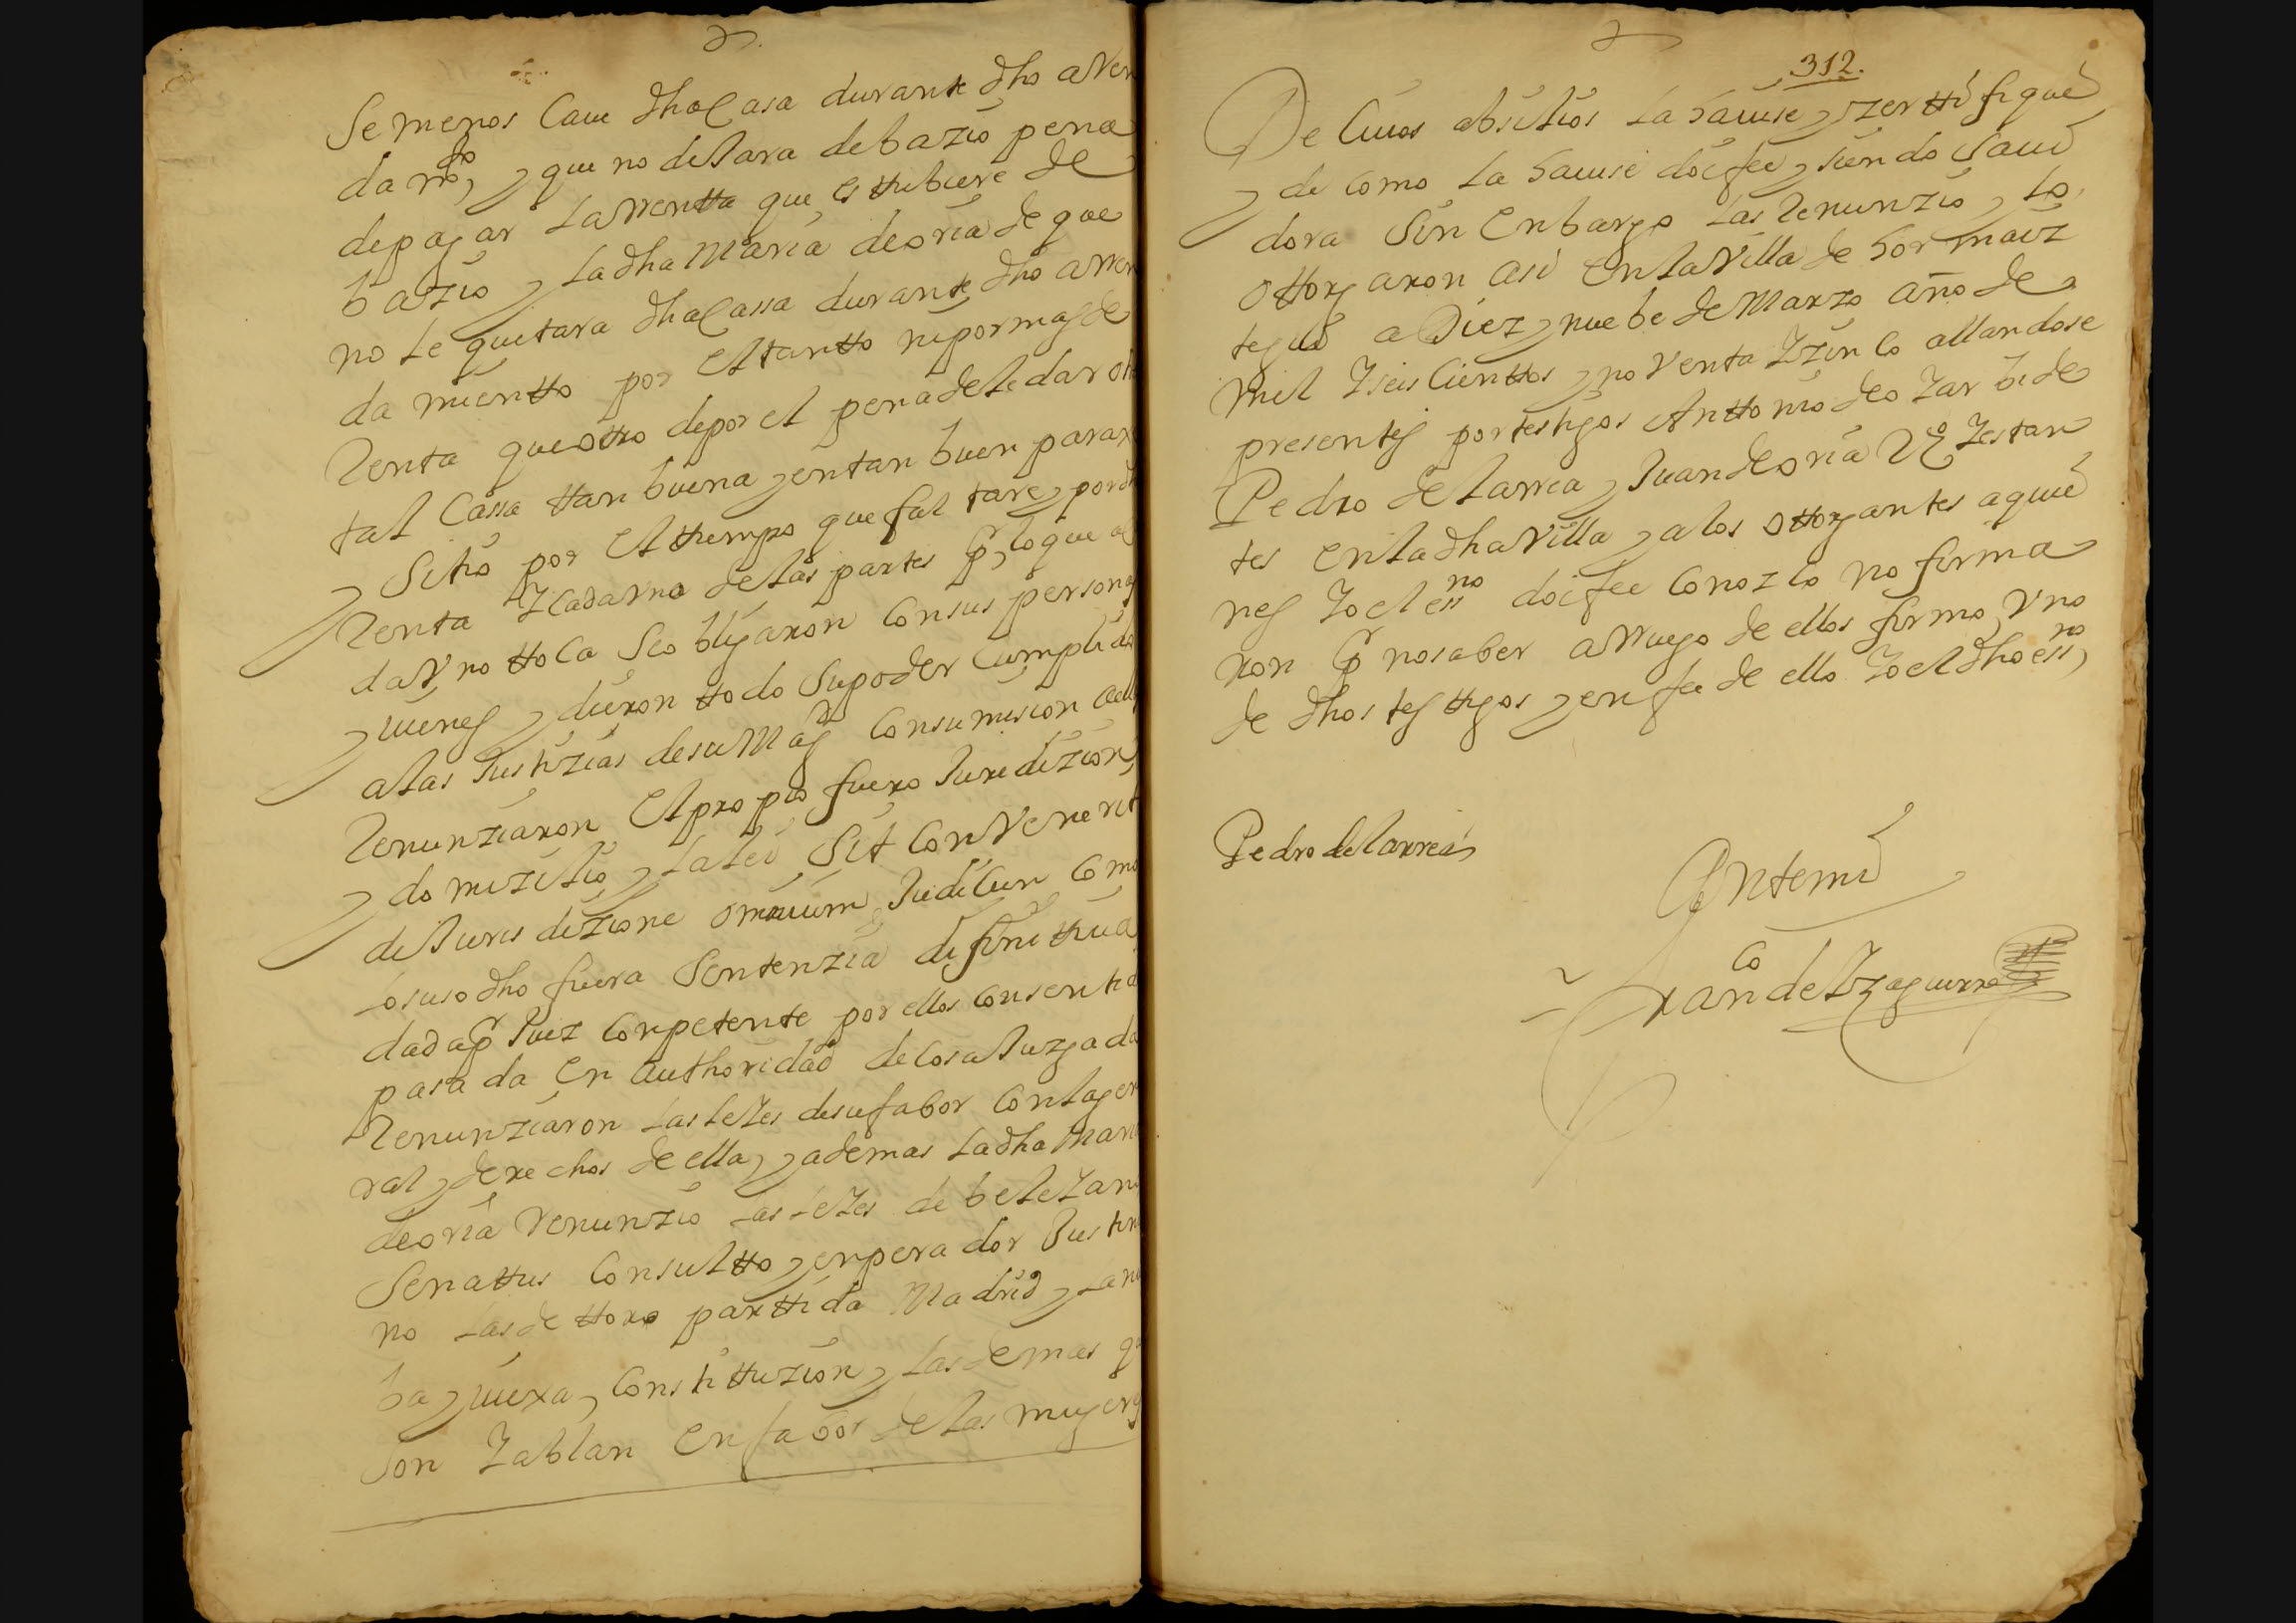 Semenos Caue dha Casa durante dho aRen
damto, y que no dejara debazio pena
depagar la rrentta que estubiere de
bazio y la dha Maria de oria de que
no le quitara dha Cassa durante dho arren
damientto por el tantto ni por mas de
Renta que otro depor el pena de le dar ot
tal Cassa ttan buena y en tan buen parax
y Sitio por el ttiempo que faltare y por dh
Renta y Cada Vna de las partes p lo que a
da Vno ttoca Se obligaron Con sus persona
y uienes y dieron ttodo Su poder Cumplido
a las Justizias de su Magd Con sumision
Renunziaron el propio fuero Juridizion
y domizilio y la lei Sit Convenerit
de Jurisdizione omnium Judicun Como
lo suso dho fuera Sentenzia difinittiua
dada p Juez Conpetente por ellos Consentid
pasada en authoridad de Cosa Juzgada
Renunziaron las leies de su fabor Con la gen
ral y derechos de ella, y ademas la dha Mari
de oria renunzio las leies de beleian
Senattus Consultto y enperador Justin
no las de ttoro parttida Madrid y la nu
ba y uiexa, Constittuzion y las demas q
Son y ablan en fabor de las mugere
312.
De Cuios absilios la hauise, y zerttifique
y de como la hauise doi fee y siendo saui
dora Sin enbargo las renunzio y lo
ottorgaron asi en la Villa de hormaiz
tegui a Diez y nuebe de Marzo año de
mil y seis Cienttos y noventa y zinco allandose
presentes por testigos Anttonio de o zar bide
Pedro de larrea y Juan de oria Vo y estan
tes en la dha Villa y a los ottorgantes a quie
nes yo el essno doi fee Conozco no firma
ron p no saber a rruego de ellos firmo Vno
de dhos testtigos y en fee de ello yo el dho essno
Pedro de larrea
Antemi
Franco de Yzaguirre